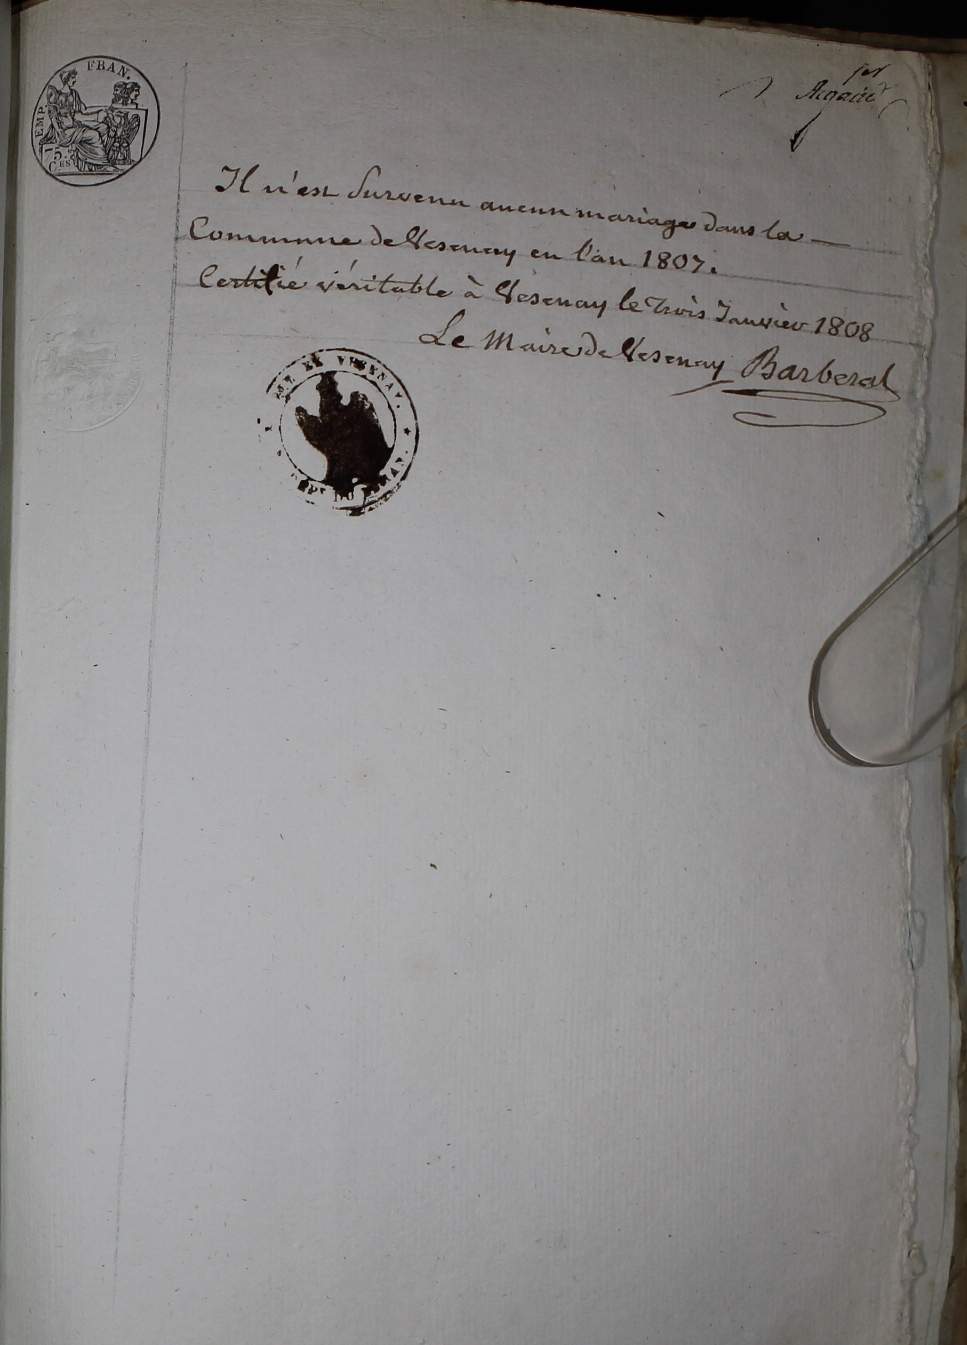 EMP. FRAN.
75
CES
Il n'est Survenu aucun mariage dans la —
Commune de Vesenay en l'an 1807.
Certifié véritable à Vesenay le trois Janvier 1808
Le Maire de Vesenay Barberat
DE VESENAY.